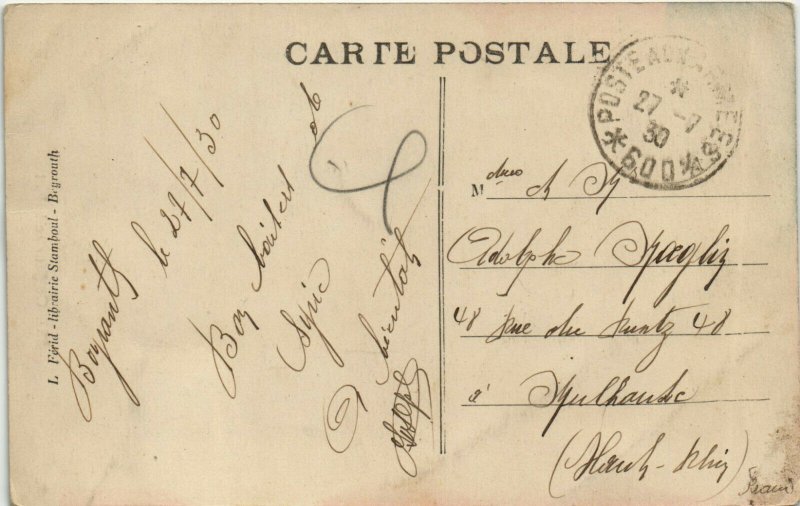 CARTE POSTALE
I. Férid - librairie Stamboul - Beyrouth
Beyrouth le 27/7/30
Bon baisers de
Syrie
A bientôt
POSTE AUX ARMEES
27 - 7
30
600
M
Adolphe Kæglin
48 Rue du Runtz 48
à Mulhouse
(Haut-Rhin)